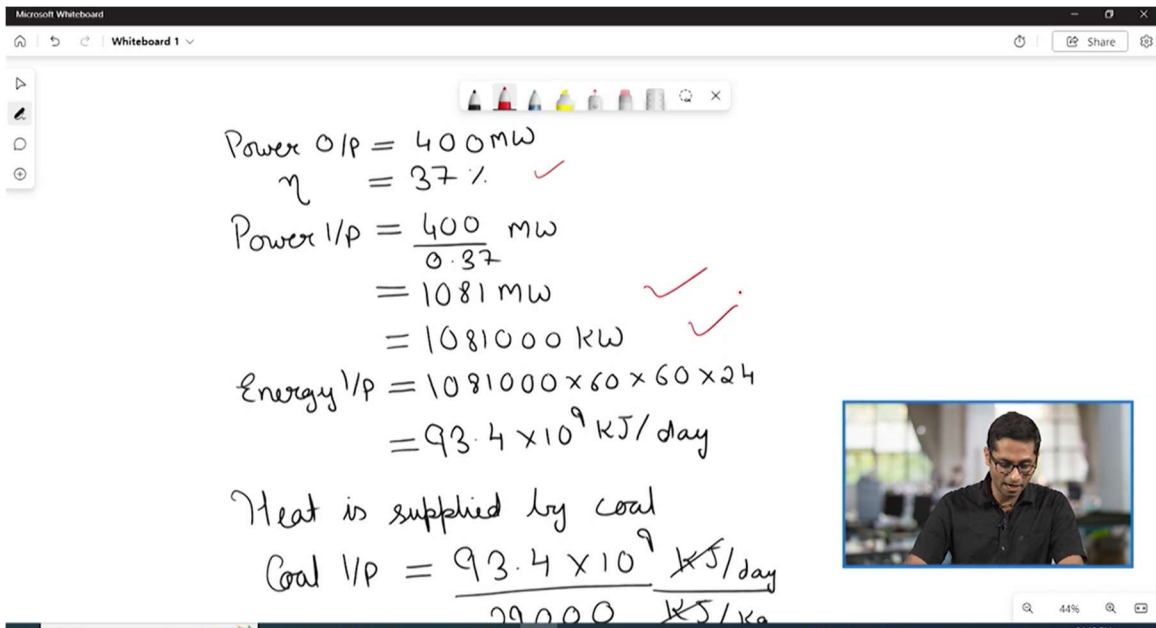 Microsoft Whiteboard
Whiteboard 1
Share
Power O/P = 400 MW
η = 37 %
Power I/P = 400/0.37 MW
= 1081 MW
= 1081000 KW
Energy I/P = 1081000 × 60 × 60 × 24
= 93.4 × 10⁹ KJ/day
Heat is supplied by coal
Coal I/P = 93.4 × 10⁹ KJ/day
KJ/Kg
44%